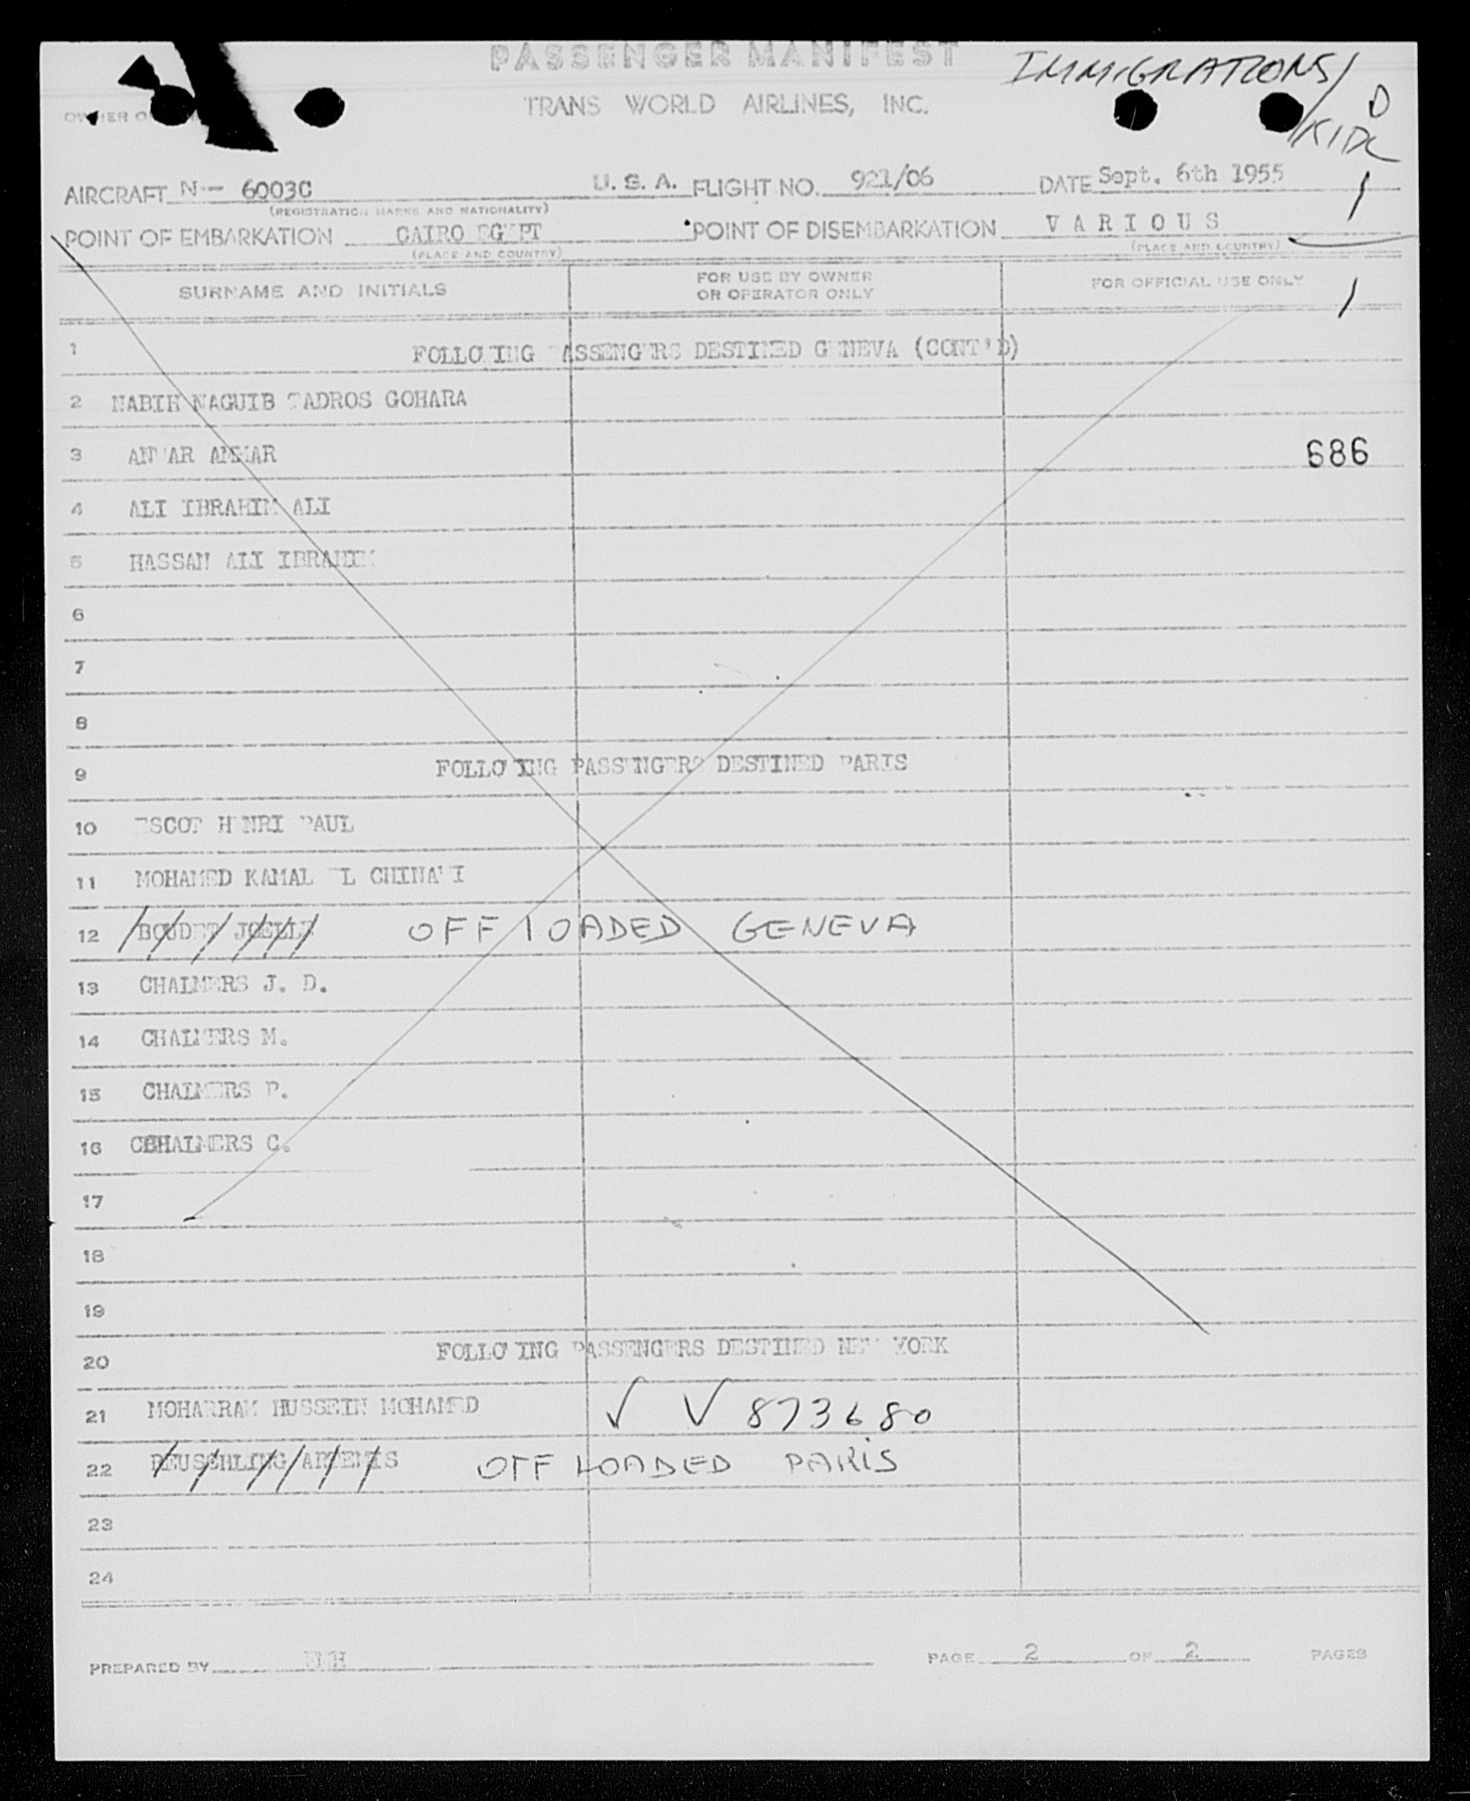 PASSENGER MANIFEST
IMMIGRATIONS/
TRANS WORLD AIRLINES, INC.
OWNER O
AIRCRAFT N - 6003C U. S. A. FLIGHT NO. 921/06 DATE Sept. 6th 1955
(REGISTRATION MARKS AND NATIONALITY)
POINT OF EMBARKATION CAIRO EGYPT POINT OF DISEMBARKATION V A R I O U S
(PLACE AND COUNTRY) (PLACE AND COUNTRY)
SURNAME AND INITIALS FOR USE BY OWNER OR OPERATOR ONLY FOR OFFICIAL USE ONLY
1 FOLLOWING PASSENGERS DESTINED GENEVA (CONT'D)
2 NABIH NAGUIB TADROS GOHARA
3 ANWAR AMMAR 686
4 ALI IBRAHIM ALI
5 HASSAN ALI IBRAHIM
6
7
8
9 FOLLOWING PASSENGERS DESTINED PARIS
10 ESCOT HENRI PAUL
11 MOHAMED KAMAL EL CHINAWI
12 BOUDET JOELLE OFF LOADED GENEVA
13 CHALMERS J. D.
14 CHALMERS M.
15 CHALMERS P.
16 CHALMERS C.
17
18
19
20 FOLLOWING PASSENGERS DESTINED NEW YORK
21 MOHARRAM HUSSEIN MOHAMED √ V 873680
22 REUSCHLING ARTEMIS OFF LOADED PARIS
23
24
PREPARED BY PAGE 2 OF 2 PAGES